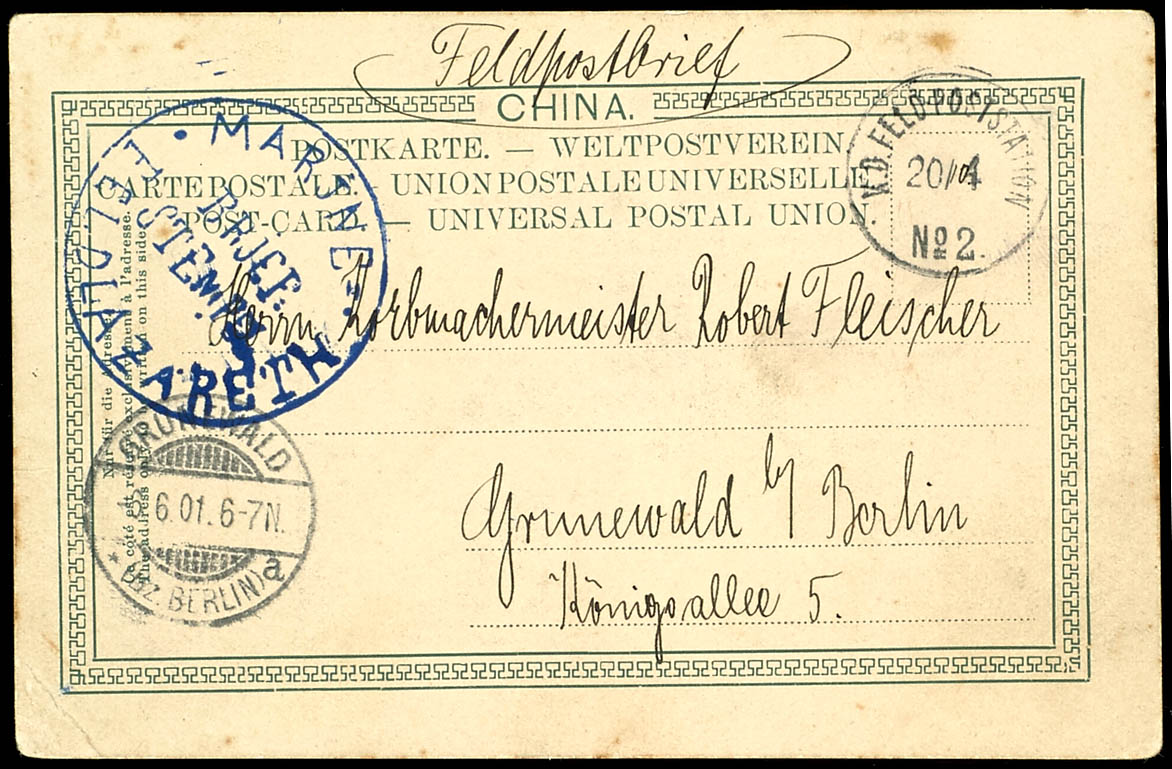 Feldpostbrief
CHINA.
POSTKARTE. — WELTPOSTVEREIN.
CARTE POSTALE. — UNION POSTALE UNIVERSELLE.
POST-CARD. — UNIVERSAL POSTAL UNION.
K.D. FELD-POSTSTATION
20/4
No 2.
MARINE-
FELDLAZARETH
BRIEF-
STEMPEL
Herrn Korbmachermeister Robert Fleischer
Grunewald b/ Berlin
Königsallee 5.
GRUNEWALD
6.01. 6-7N.
* (Bz. BERLIN) a
Nur für die Adresse.
Ce côté est réservé exclusivement à l'adresse.
The address only to be written on this side.